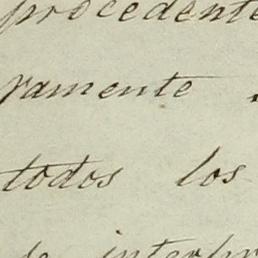 procedente
ramente .
todos los
de interpr